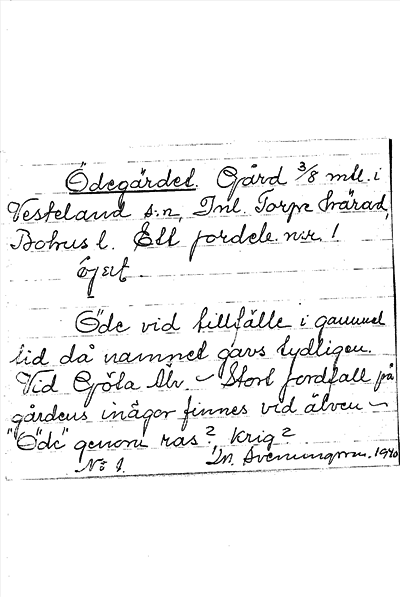 Ödegärdet. Gård 3/8 mtl. i
Vesteland s:n, Inl. Torpe härad,
Bohus l. Ett fordele. nr. 1
Öde vid tillfälle i gammel
tid då namnet gavs tydligen.
Vid Göta Älv. – Stort jordfall på
gårdens inägor finnes vid älven –
"Öde" genom ras? krig?
No 1. M. Svenningsson. 1940